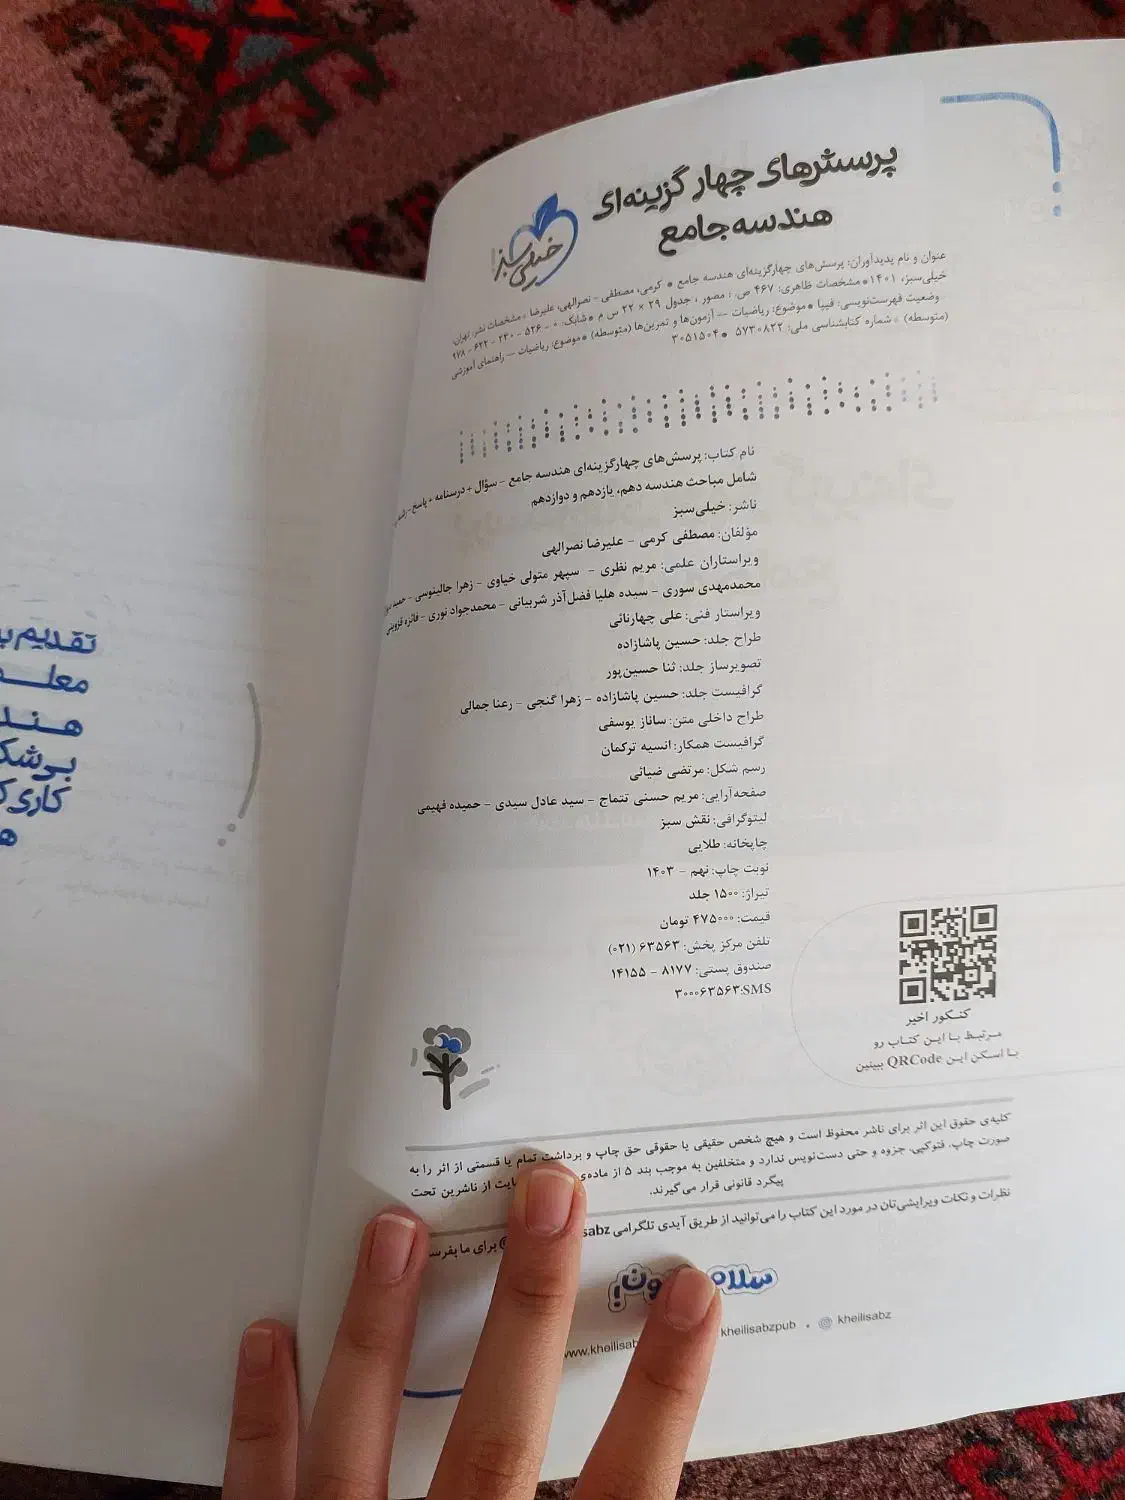 پرسش‌های چهار گزینه‌ای
هندسه جامع
خیلی سبز
عنوان و نام پدیدآوران: پرسش‌های چهارگزینه‌ای هندسه جامع * کرمی، مصطفی - نصرالهی، علیرضا * مشخصات نشر: تهران،
خیلی‌سبز، ۱۴۰۱ * مشخصات ظاهری: ۴۶۷ ص. : مصور ، جدول ۲۹ × ۲۲ س م * شابک: ۰ - ۵۲۶ - ۲۳۰ - ۶۲۲ - ۹۷۸
وضعیت فهرست‌نویسی: فیپا * موضوع: ریاضیات -- آزمون‌ها و تمرین‌ها (متوسطه) * موضوع: ریاضیات -- راهنمای آموزشی
(متوسطه) * شماره کتابشناسی ملی: ۵۷۳۰۸۲۲ * ۳۰۵۱۵۰۴
نام کتاب: پرسش‌های چهارگزینه‌ای هندسه جامع - سؤال + درسنامه + پاسخ -
شامل مباحث هندسه دهم، یازدهم و دوازدهم
ناشر: خیلی‌سبز
مؤلفان: مصطفی کرمی - علیرضا نصرالهی
ویراستاران علمی: مریم نظری - سپهر متولی خیاوی - زهرا جالینوسی -
محمدمهدی سوری - سیده هلیا فضل‌آذر شربیانی - محمدجواد نوری - فائزه قزوینی
ویراستار فنی: علی چهارنائی
طراح جلد: حسین پاشازاده
تصویرساز جلد: ثنا حسین‌پور
گرافیست جلد: حسین پاشازاده - زهرا گنجی - رعنا جمالی
طراح داخلی متن: ساناز یوسفی
گرافیست همکار: انسیه ترکمان
رسم شکل: مرتضی ضیائی
صفحه‌آرایی: مریم حسنی تتماج - سید عادل سیدی - حمیده فهیمی
لیتوگرافی: نقش سبز
چاپخانه: طلایی
نوبت چاپ: نهم - ۱۴۰۳
تیراژ: ۱۵۰۰ جلد
قیمت: ۴۷۵۰۰۰ تومان
تلفن مرکز پخش: ۶۳۵۶۳ (۰۲۱)
صندوق پستی: ۸۱۷۷ - ۱۴۱۵۵
SMS: ۳۰۰۰۶۳۵۶۳
کنکور اخیر
مرتبط با این کتاب رو
با اسکن این QRCode ببینین
کلیه‌ی حقوق این اثر برای ناشر محفوظ است و هیچ شخص حقیقی یا حقوقی حق چاپ و برداشت تمام یا قسمتی از اثر را به
صورت چاپ، فتوکپی، جزوه و حتی دست‌نویس ندارد و متخلفین به موجب بند ۵ از ماده‌ی از ناشرین تحت
پیگرد قانونی قرار می‌گیرند.
نظرات و نکات ویرایشی‌تان در مورد این کتاب را می‌توانید از طریق آیدی تلگرامی sabz برای ما
سلام
www.kheilisab kheilisabzpub kheilisabz
تقدیم
معلـ
هنـد
بی‌شک
کاری